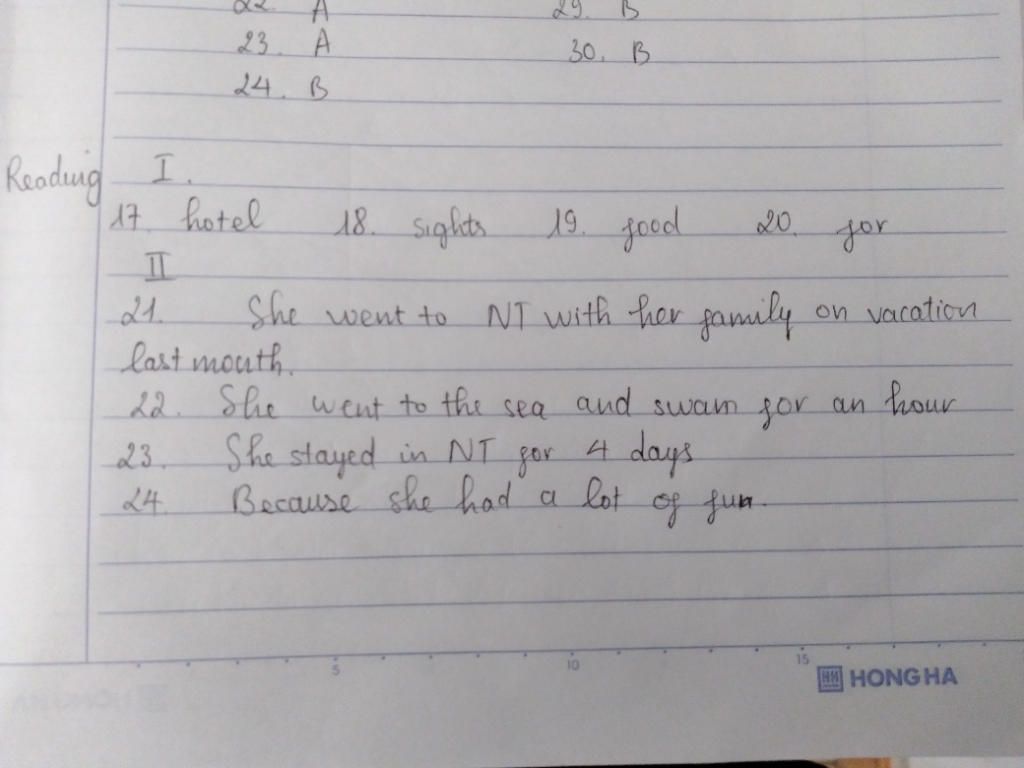 22. A 29. B
23. A 30. B
24. B
Reading I.
17. hotel 18. sights 19. food 20. for
II
21. She went to NT with her family on vacation
last month.
22. She went to the sea and swam for an hour
23. She stayed in NT for 4 days
24. Because she had a lot of fun.
5 10 15
HONG HA